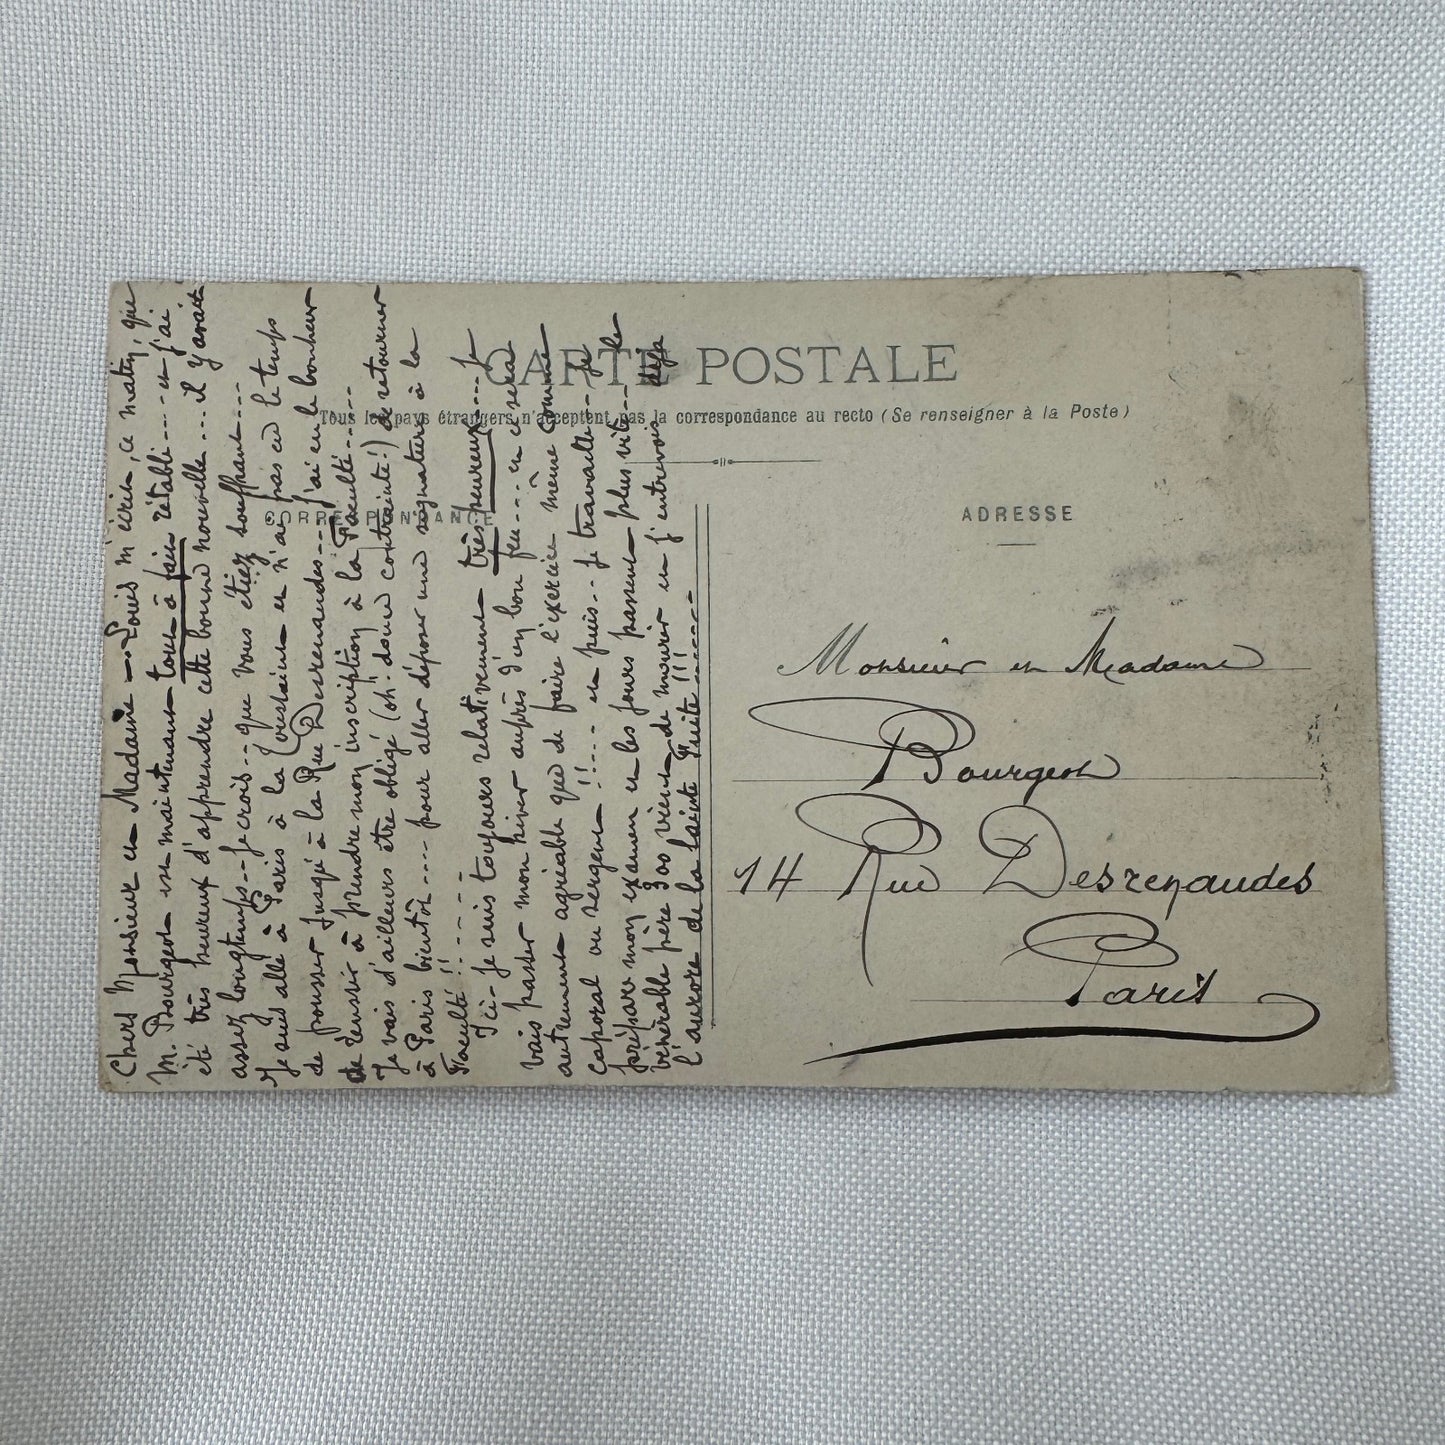 CARTE POSTALE
Tous les pays étrangers n'acceptent pas la correspondance au recto (Se renseigner à la Poste)
CORRESPONDANCE
ADRESSE
Chers Monsieur et Madame - Louis m'écrit, ce matin, que
M. Bourgeot est maintenant tout à fait rétabli ..... et j'ai
été très heureux d'apprendre cette bonne nouvelle ... il y avait
assez longtemps .. je crois .. que vous étiez souffrant ....
Je suis allé à Paris à la Toussaint et n'ai pas eu le temps
de pousser jusqu'à la Rue Desrenaudes .. j'ai eu le bonheur
de réussir à prendre mon inscription à la Faculté ......
Je vais d'ailleurs être obligé (oh! douce contrainte!) de retourner
à Paris bientôt .... pour aller déposer une signature à la
Faculté!! ......
Ici - Je suis toujours relativement très heureux ... Je
vais passer mon hiver auprès d'un bon feu .... et ce sera
autrement agréable que de faire l'exercice même comme
caporal ou sergent!! .... et puis ... Je travaille .. je
prépare mon examen et les jours passent plus vite ... le
vénérable père 300 vient de mourir et j'entrevois déjà
l'aurore de la sainte Fuite!!! ......
Monsieur et Madame
Bourgeot
14 Rue Desrenaudes
Paris